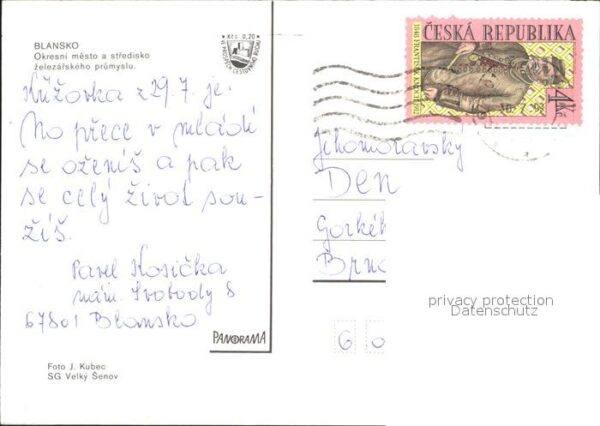 BLANSKO
Okresní město a středisko
železářského průmyslu.
Kčs 0,20
Křížovka z 29.7. je:
No přece v mládí
se oženíš a pak
se celý život sou-
žíš.
Pavel Kosička
nám. Svobody 8
67801 Blansko
PANORAMA
Foto J. Kubec
SG Velký Šenov
ČESKÁ REPUBLIKA
4 Kč
Jihomoravský
Den
Gorkéh
Brno
60
privacy protection
Datenschutz